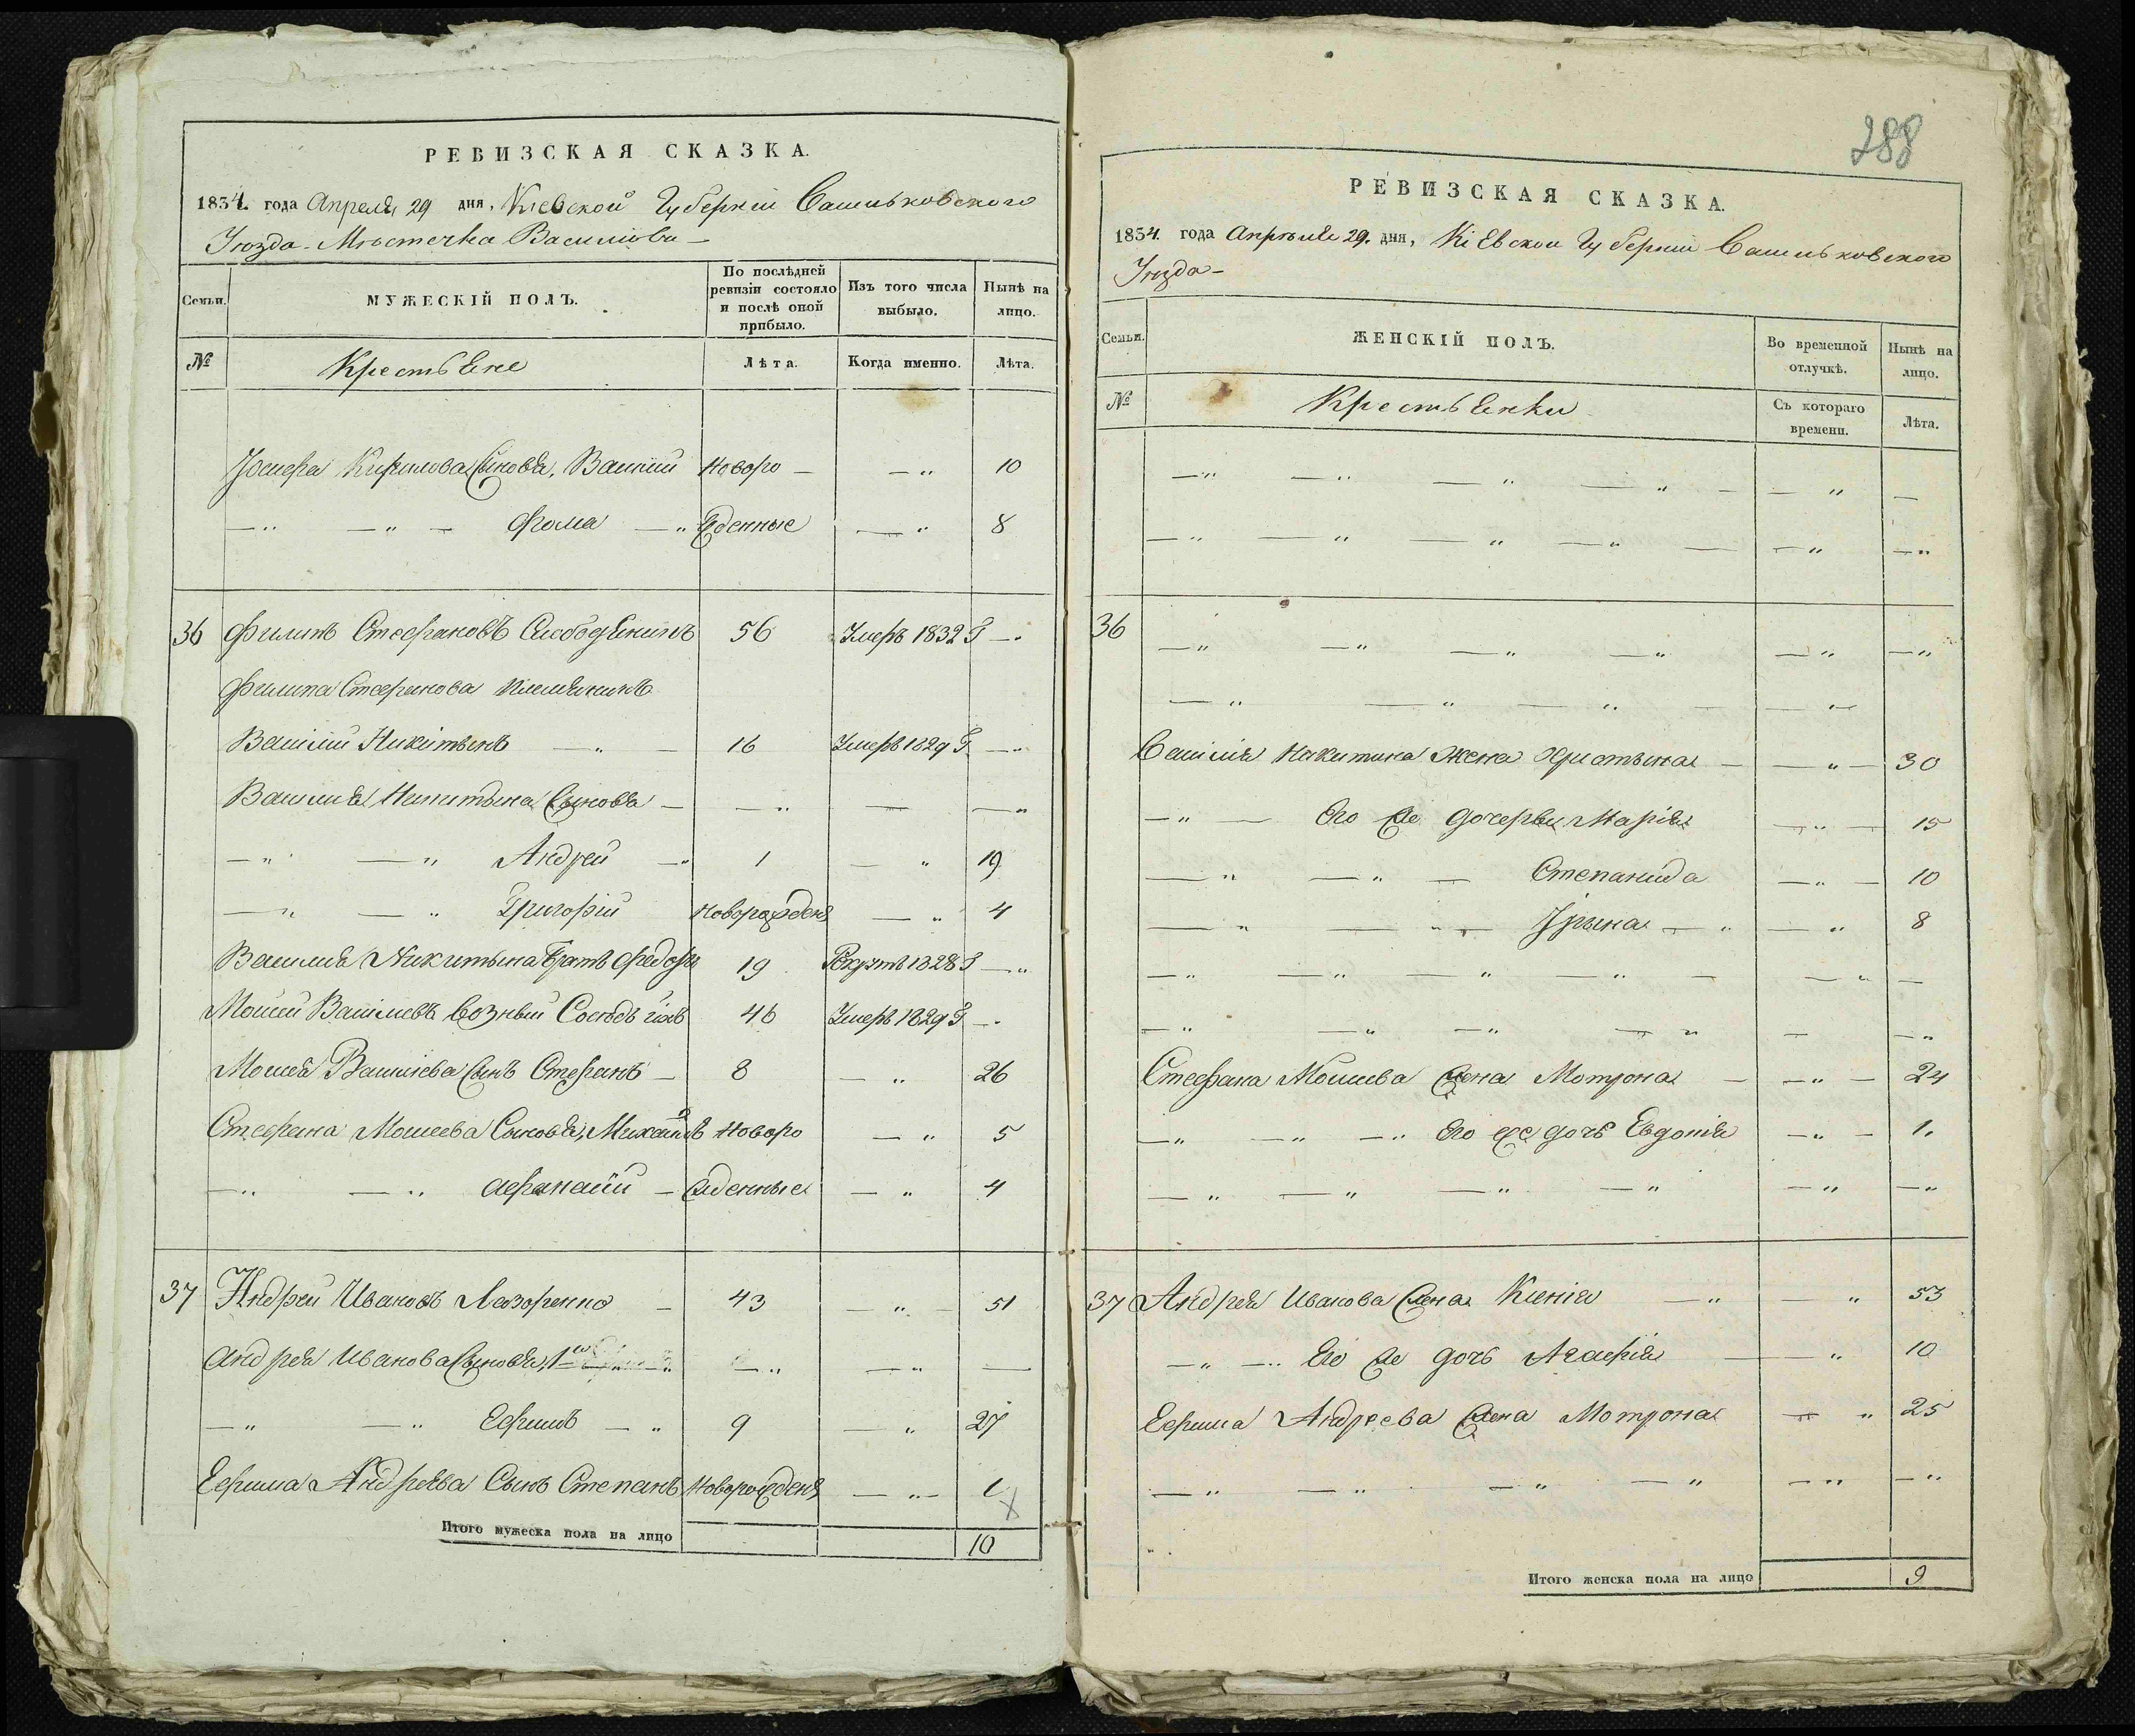 РЕВИЗСКАЯ СКАЗКА.
1834. года Апреля 29 дня, Киевской Губернии Васильковского
Уюзда - Мѣстечка Василиова
Семьи. МУЖЕСКІЙ ПОЛЪ. По послѣдней ревизіи состояло и послѣ оной прибыло. Изъ того числа выбыло. Нынѣ на лицо.
№ Крестьяне Лѣта. Когда именно. Лѣта.
Кирилова Сыновья, Василий Новоро — — " 10
— " — " — Фома — " жденные — " 8
36 Филипъ Стефановъ 56 Умеръ 1832 Г — "
Филипа Стефанова племяникъ
Василий Никитынъ — " — 16 Умеръ 1829 Г — "
Василия Никитына Сыновья — — " — — "
— " — " Андрей — " 1 — " 19
— " — " Григорий Новорожденъ — " 4
Василия Никитына братъ Федоръ 19 Рекрутъ 1828 Г — "
Моисей Василиевъ Возный Сосѣдъ ихъ 46 Умеръ 1829 Г — "
Моисея Василиева Сынъ Стефанъ — 8 — " 26
Стефана Моисеева Сыновья, Михайлъ Новоро — " 5
— " — " Афанасий — жденные — " 4
37 Андрей Ивановъ Лазоренко — 43 — " — 51
Андрея Иванова Сыновья, 1й — " — " —
— " — " Ефимъ — " 9 — " 27
Ефима Андреева Сынъ Степанъ Новорожденъ — " — 1
Итого мужеска пола на лицо 10
288
РЕВИЗСКАЯ СКАЗКА.
1834. года Апрѣля 29. дня, Кіевской Губернии Васильковского
Уюзда -
Семьи. ЖЕНСКІЙ ПОЛЪ. Во временной отлучкѣ. Нынѣ на лицо.
№ Крестьянки Съ котораго времени. Лѣта.
— " — " — " — " — — " —
— " — " — " — " — — " — "
36 — " — " — " — " — " — "
— " — " — " — — "
Василия Никитина Жена Христына — — " — 30
— " — Его же дочеры Мария — " — 15
— " — " — Степанида — " — 10
— " — " Ирына — " — " 8
— " — " — " — " — — " —
— " — " — " — " — — "
Стефана Моисева жена Мотрона — — " — 24
— " — " — " Его же дочъ Евдокия — " — 1.
— " — " — " — " — " — "
37 Андрея Иванова жена Ксения — " — " 53
— " — " Его же дочъ Агафия — — " 10
Ефима Андреева жена Мотрона — " 25
— " — " — " — " — " — "
Итого женска пола на лицо 9